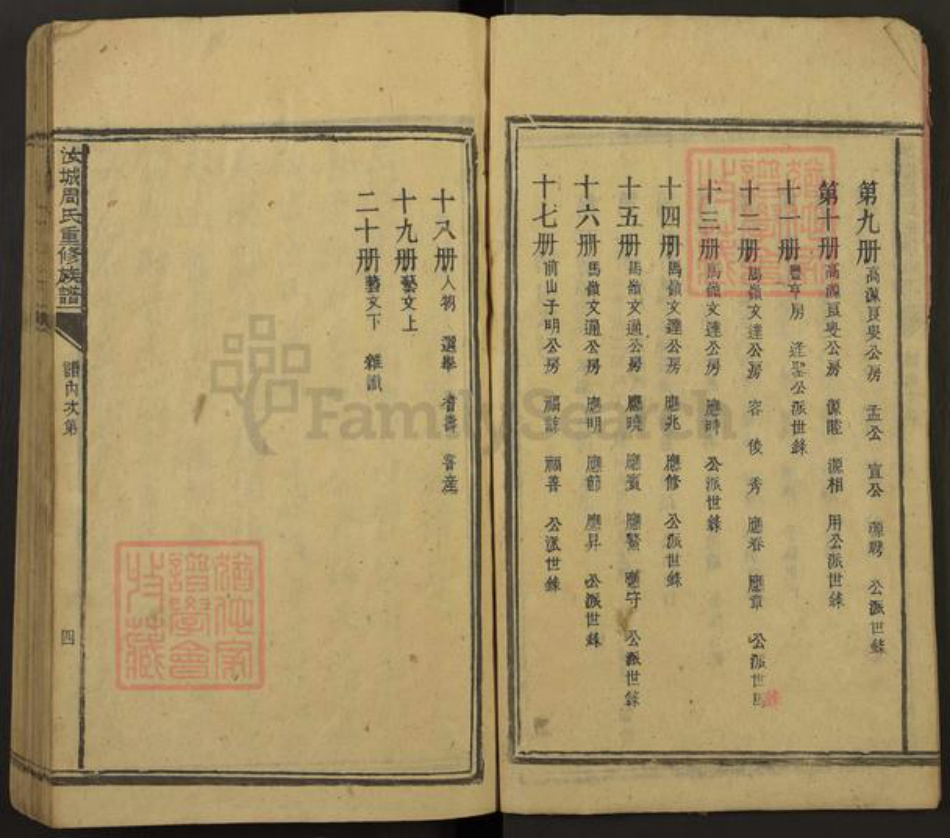 第九册 高源良叟公房 孟公 宣公 源聘 公派世錄
第十册 高源良叟公房 源陞 源相 用公派世錄
十一册 豐亨房 逢聖公派世錄
十二册 馬嶺文達公房 容 俊 秀 應春 應章 公派世
十三册 馬嶺文達公房 應時 公派世錄
十四册 馬嶺文達公房 應兆 應修 公派世錄
十五册 馬嶺文通公房 應曉 應賓 應鰲 應守 公派世錄
十六册 馬嶺文通公房 應明 應節 應昇 公派世錄
十七册 前山子明公房 福諒 福善 公派世錄
十八册 人物 選舉 耆壽 嘗產
十九册 藝文上
二十册 藝文下 雜識
汝城周氏重修族譜 譜內次第 四
FamilySearch